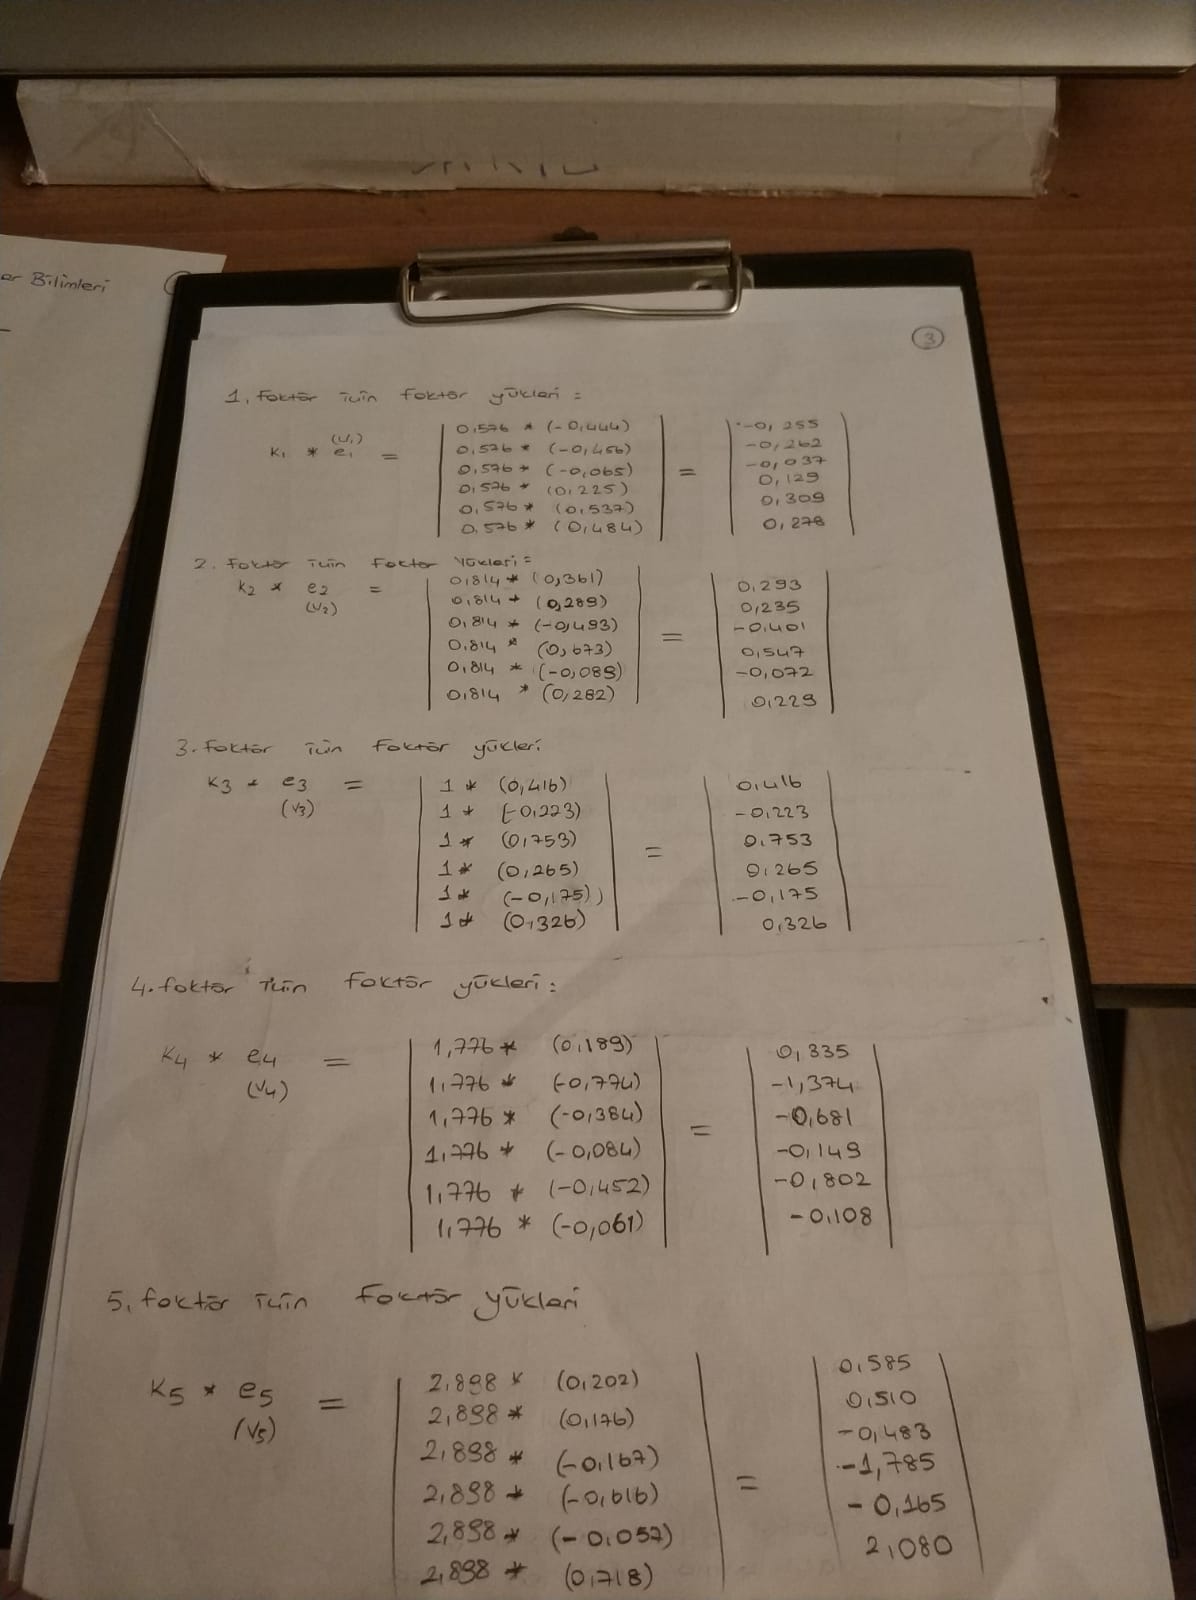 er Bilimleri
3
1. faktör için faktör yükleri =
K1 * e1 (V1) =
0,576 * (-0,444)
0,576 * (-0,456)
0,576 * (-0,065)
0,576 * (0,225)
0,576 * (0,537)
0,576 * (0,484)
=
-0,255
-0,262
-0,037
0,129
0,309
0,278
2. faktör için faktör yükleri =
K2 * e2 =
(V2)
0,814 * (0,361)
0,814 * (0,289)
0,814 * (-0,493)
0,814 * (0,673)
0,814 * (-0,089)
0,814 * (0,282)
=
0,293
0,235
-0,401
0,547
-0,072
0,229
3. faktör için faktör yükleri
K3 * e3 =
(V3)
1 * (0,416)
1 * (-0,223)
1 * (0,753)
1 * (0,265)
1 * (-0,175)
1 * (0,326)
=
0,416
-0,223
0,753
0,265
-0,175
0,326
4. faktör için faktör yükleri :
K4 * e4 =
(V4)
1,776 * (0,189)
1,776 * (-0,774)
1,776 * (-0,384)
1,776 * (-0,084)
1,776 * (-0,452)
1,776 * (-0,061)
=
0,335
-1,374
-0,681
-0,149
-0,802
-0,108
5. faktör için faktör yükleri
K5 * e5 =
(V5)
2,898 * (0,202)
2,898 * (0,176)
2,898 * (-0,167)
2,898 * (-0,616)
2,898 * (-0,057)
2,898 * (0,718)
=
0,585
0,510
-0,483
-1,785
-0,165
2,080